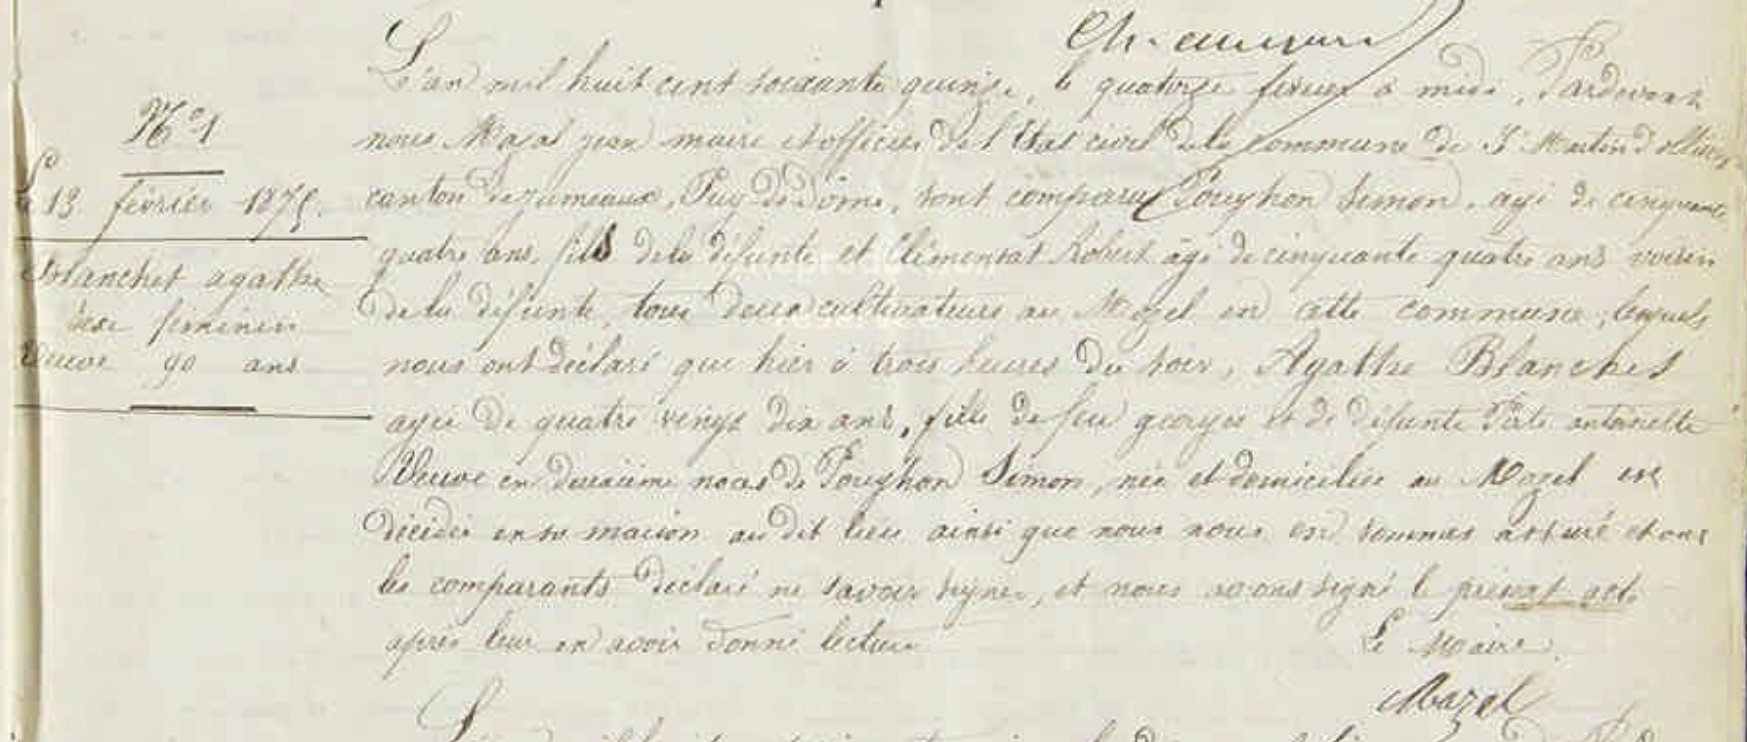 N° 1
Le 13 février 1875.
Blanchet agathe
sexe féminin
Veuve 90 ans
L'an mil huit cent soixante quinze, le quatorze février à midi, Pardevant
nous Mazel jean maire et officier de l'Etat civil de la commune de St Martin d'ollières
canton de jumeaux, Puy de Dôme, sont comparu Poughon Simon, agé de cinquante
quatre ans, fils de la défunte et Clémensat Robert âgé de cinquante quatre ans voisin
de la défunte, tous deux cultivateurs au Mazel en cette commune, lesquels
nous ont déclaré que hier à trois heures du soir, Agathe Blanchet
agée de quatre vingt dix ans, fille de feu georges et de défunte antoinette
Veuve en deuxième noces de Poughon Simon, née et domiciliée au Mazel est
décédée en sa maison au dit lieu ainsi que nous nous en sommes assuré et ont
les comparants déclaré ne savoir signer, et nous avons signé le présent acte
après leur en avoir donné lecture
Le Maire.
Mazel